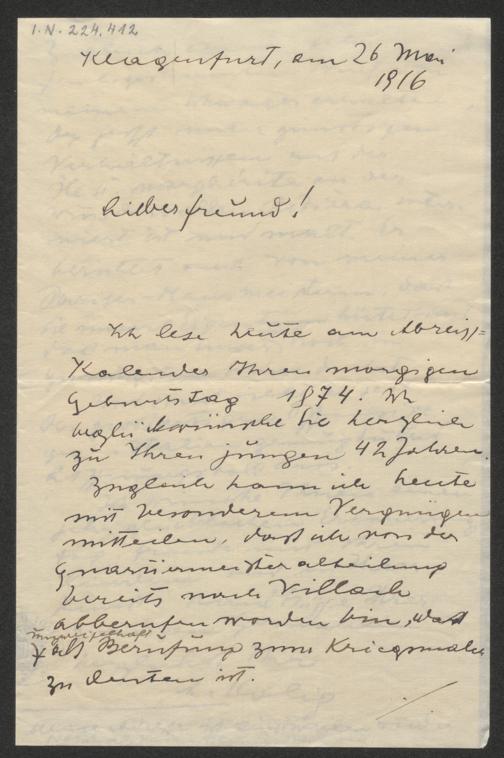 I.N. 224.412
Klagenfurt, am 26 Mai
1916
Lieber Freund!
Ich lese heute am Abreiss=
Kalender Ihren morgigen
Geburtstag 1874. Ich
beglückwünsche Sie herzlich
zu Ihren jungen 42 Jahren.
Zugleich kann ich heute
mit besonderem Vergnügen
mitteilen, dass ich von der
Quartiermeisterabteilung
bereits nach Villach
abberufen worden bin, was
unzweifelhaft
als Berufung zum Kriegsmaler
zu deuten ist.